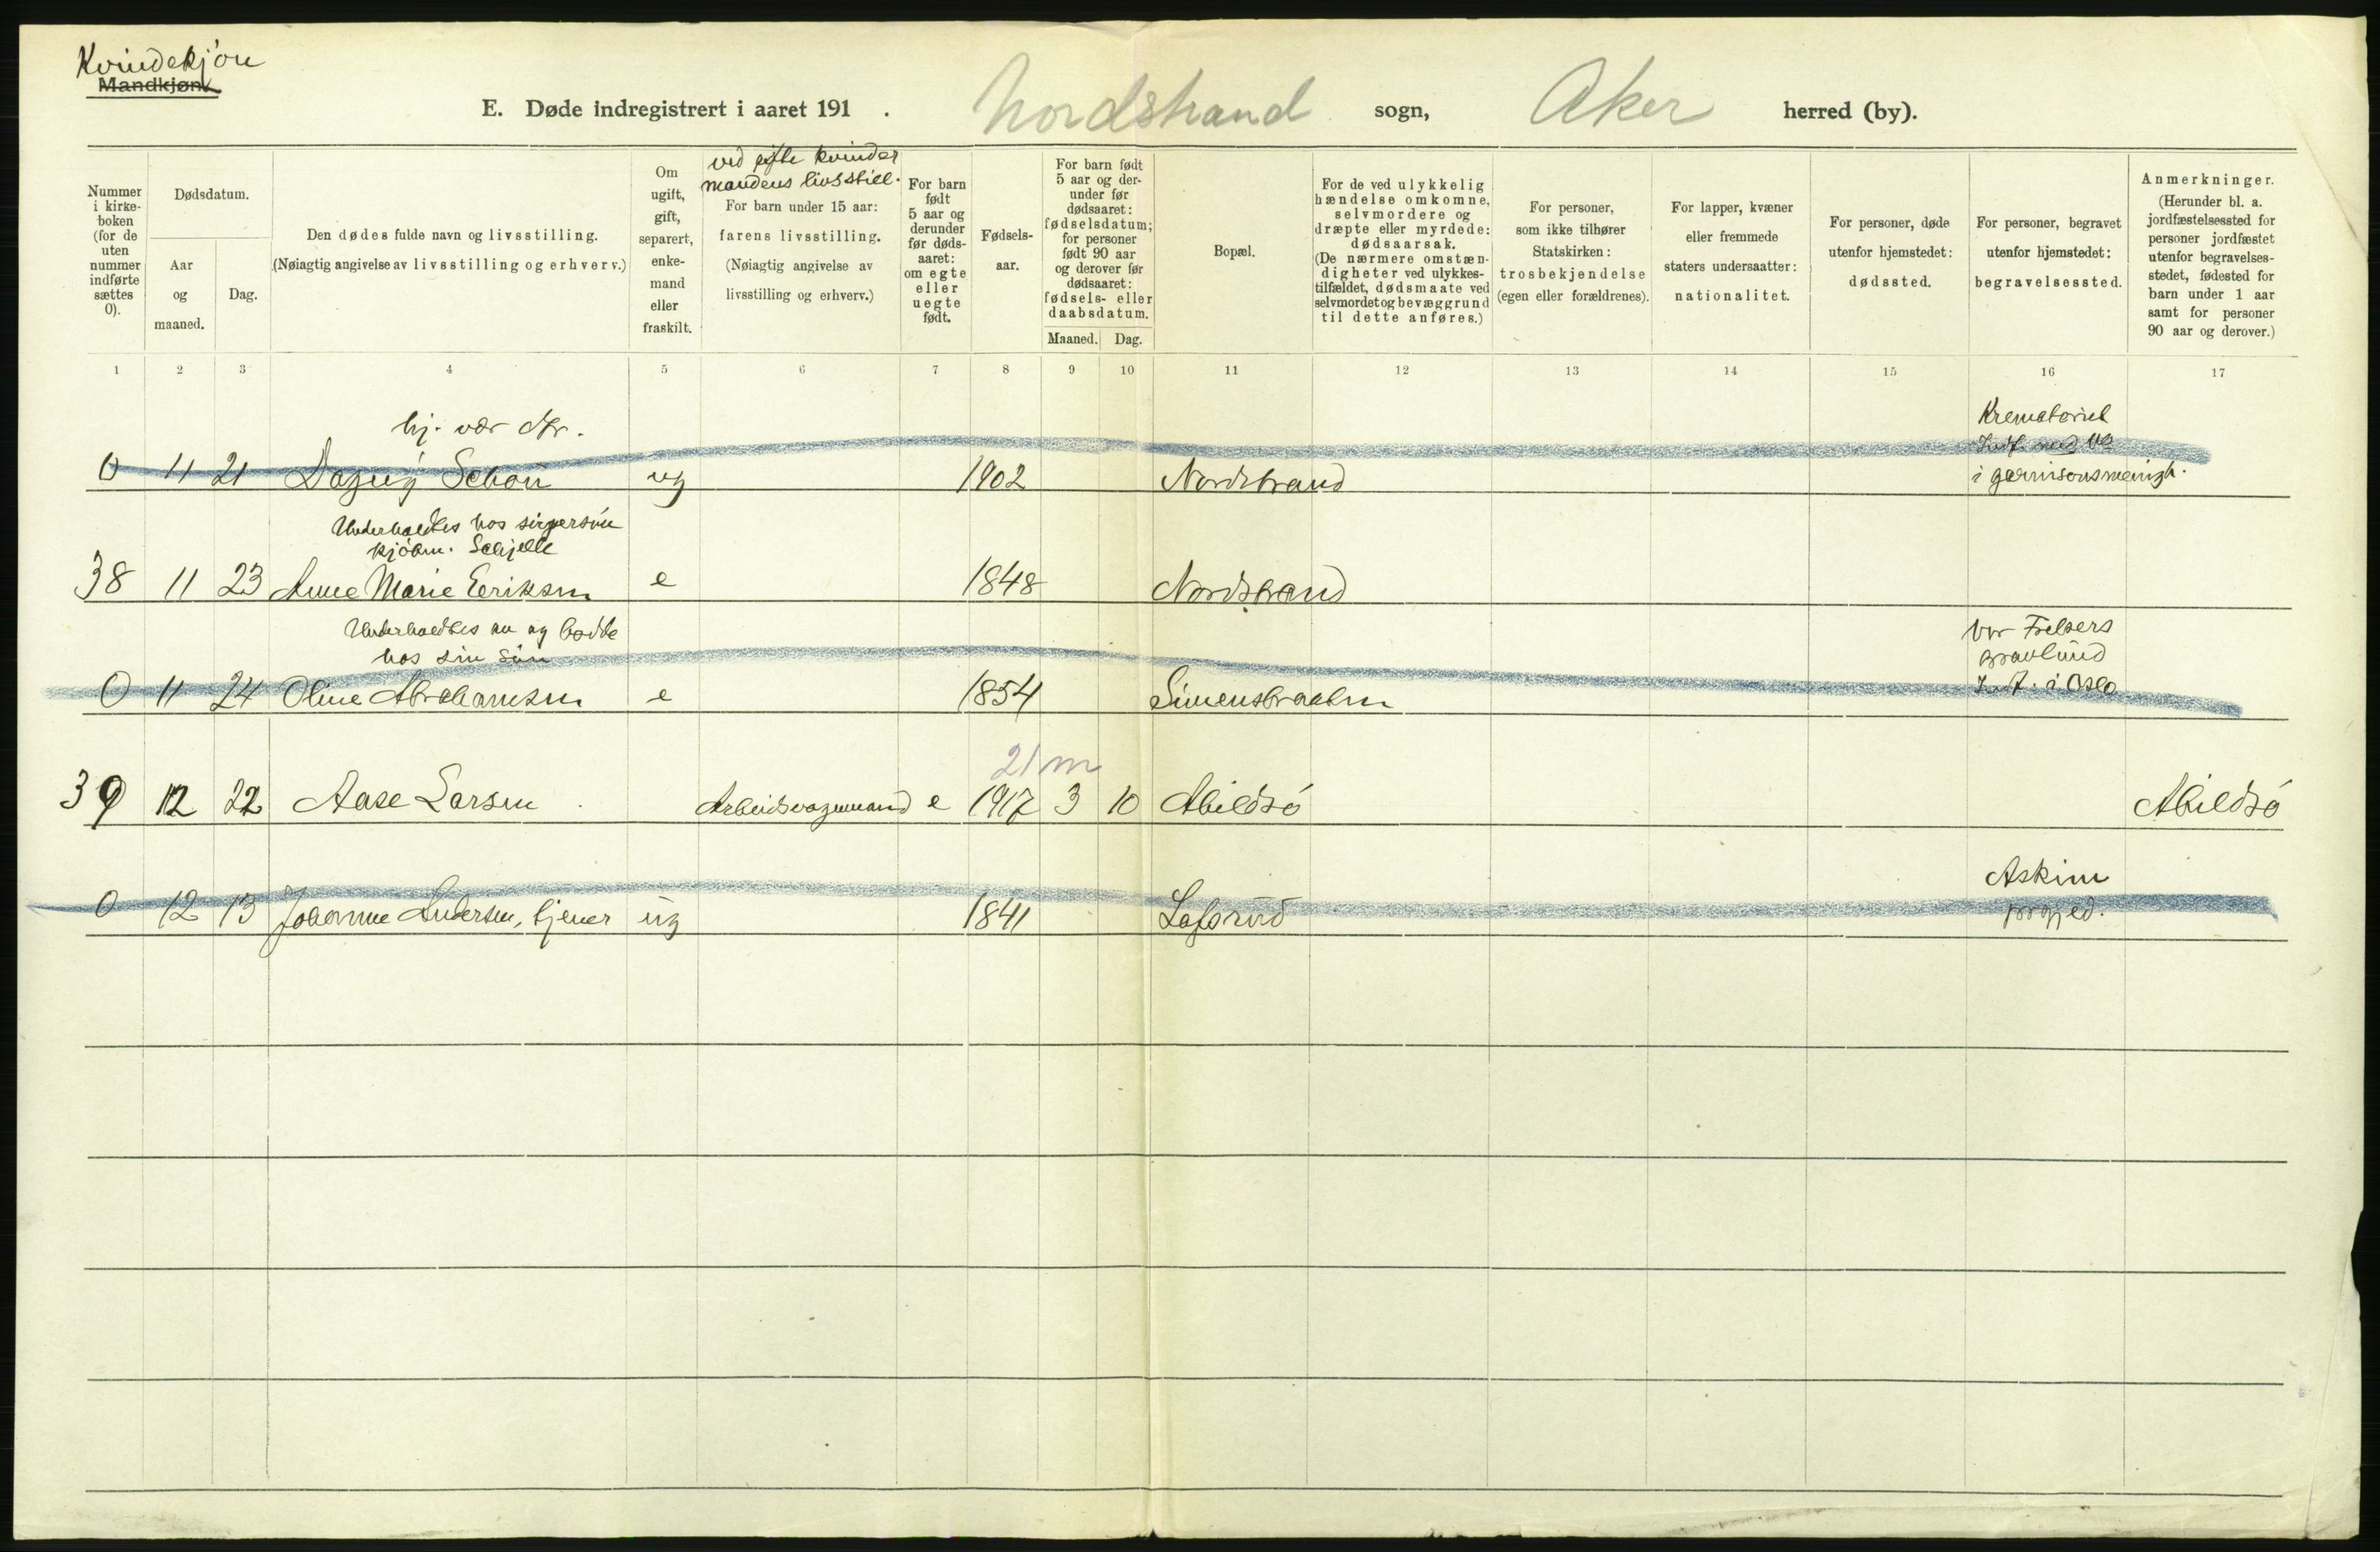 Kvindekjøn
Mandkjøn.
E. Døde indregistrert i aaret 191 . Nordstrand sogn, Aker herred (by).
Nummer i kirke-boken (for de uten nummer indførte sættes 0).
Dødsdatum.
Aar og maaned.
Dag.
Den dødes fulde navn og livsstilling.
(Nøiagtig angivelse av livsstilling og erhverv.)
Om ugift, gift, separert, enke-mand eller fraskilt.
ved gifte kvinder
mandens livsstill.
For barn under 15 aar:
farens livsstilling.
(Nøiagtig angivelse av
livsstilling og erhverv.)
For barn født 5 aar og derunder før døds-aaret: om egte eller uegte født.
Fødsels-aar.
For barn født 5 aar og der-under før dødsaaret: fødselsdatum; for personer født 90 aar og derover før dødsaaret: fødsels- eller daabsdatum.
Maaned. Dag.
Bopæl.
For de ved ulykkelig hændelse omkomne, selvmordere og dræpte eller myrdede: dødsaarsak.
(De nærmere omstæn-digheter ved ulykkes-tilfældet, dødsmaate ved selvmordet og bevæggrund til dette anføres.)
For personer, som ikke tilhører Statskirken: trosbekjendelse (egen eller forældrenes).
For lapper, kvæner eller fremmede staters undersaatter: nationalitet.
For personer, døde utenfor hjemstedet: dødssted.
For personer, begravet utenfor hjemstedet: begravelsessted.
Anmerkninger.
(Herunder bl. a. jordfæstelsessted for personer jordfæstet utenfor begravelses-stedet, fødested for barn under 1 aar samt for personer 90 aar og derover.)
1 2 3 4 5 6 7 8 9 10 11 12 13 14 15 16 17
hj. vær dtr.
Krematoriet
0 11 21 Dagny Schou ug 1902 Nordstrand
i garnisonsmenigh.
Underholdtes hos svigersøn
kjøbm. Schjelle
38 11 23 Anne Marie Eriksen e 1848 Nordstrand
Underholdtes av og bodde
hos sin søn
Vor Frelsers
gravlund
0 11 24 Oline Abrahamsen e 1854 Simensbraaten Indf. i Oslo
21 m
39 12 22 Aase Larsen Arbeidsvognmand e 1917 3 10 Abildsø Abildsø
Askim
0 12 13 Johanne Andersen, tjener ug 1841 Lofsrud prgjed.